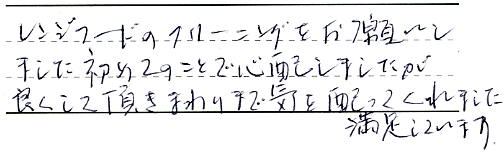 レンジフードのクリーニングをお願いし
ました初めてのことで心配しましたが
良くして頂きまわりまで気を配ってくれました
満足しています